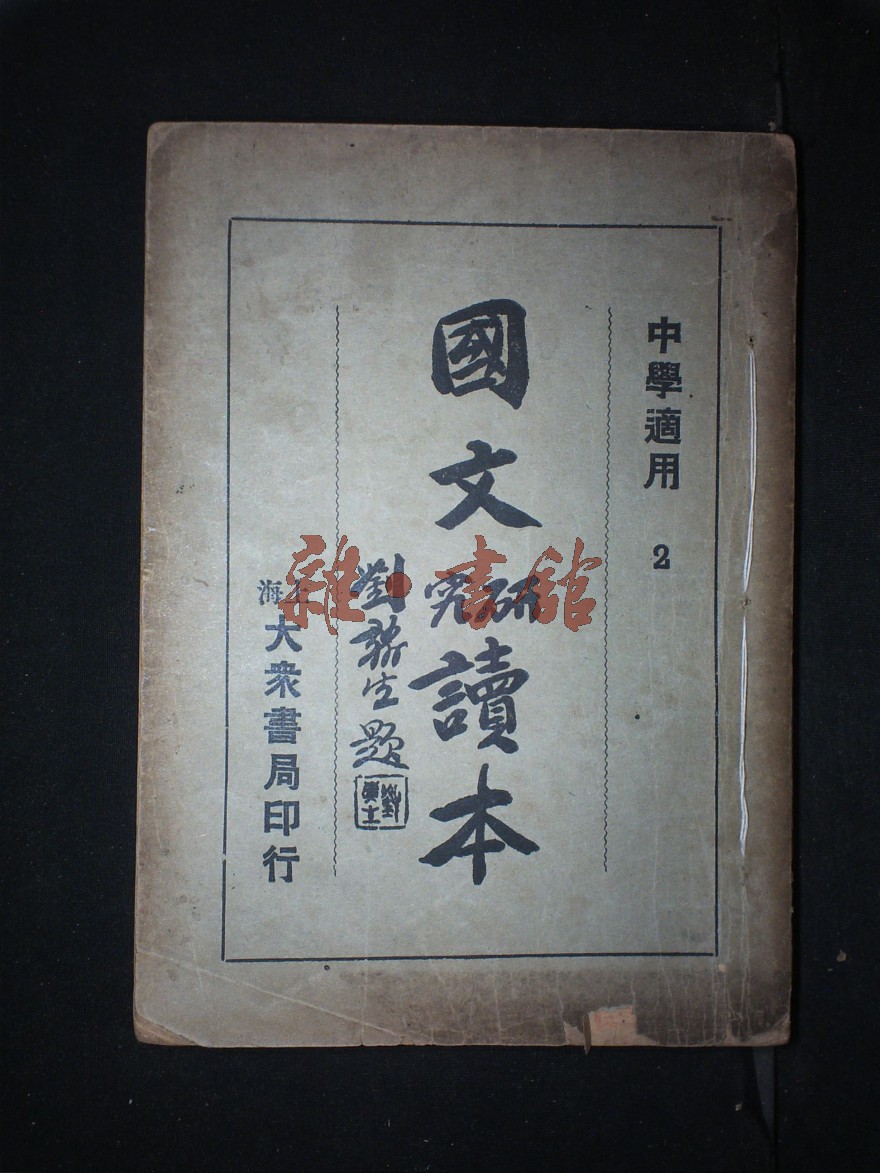 中學適用 2
國文研究讀本
劉勝生題
上海大衆書局印行
雜·書館